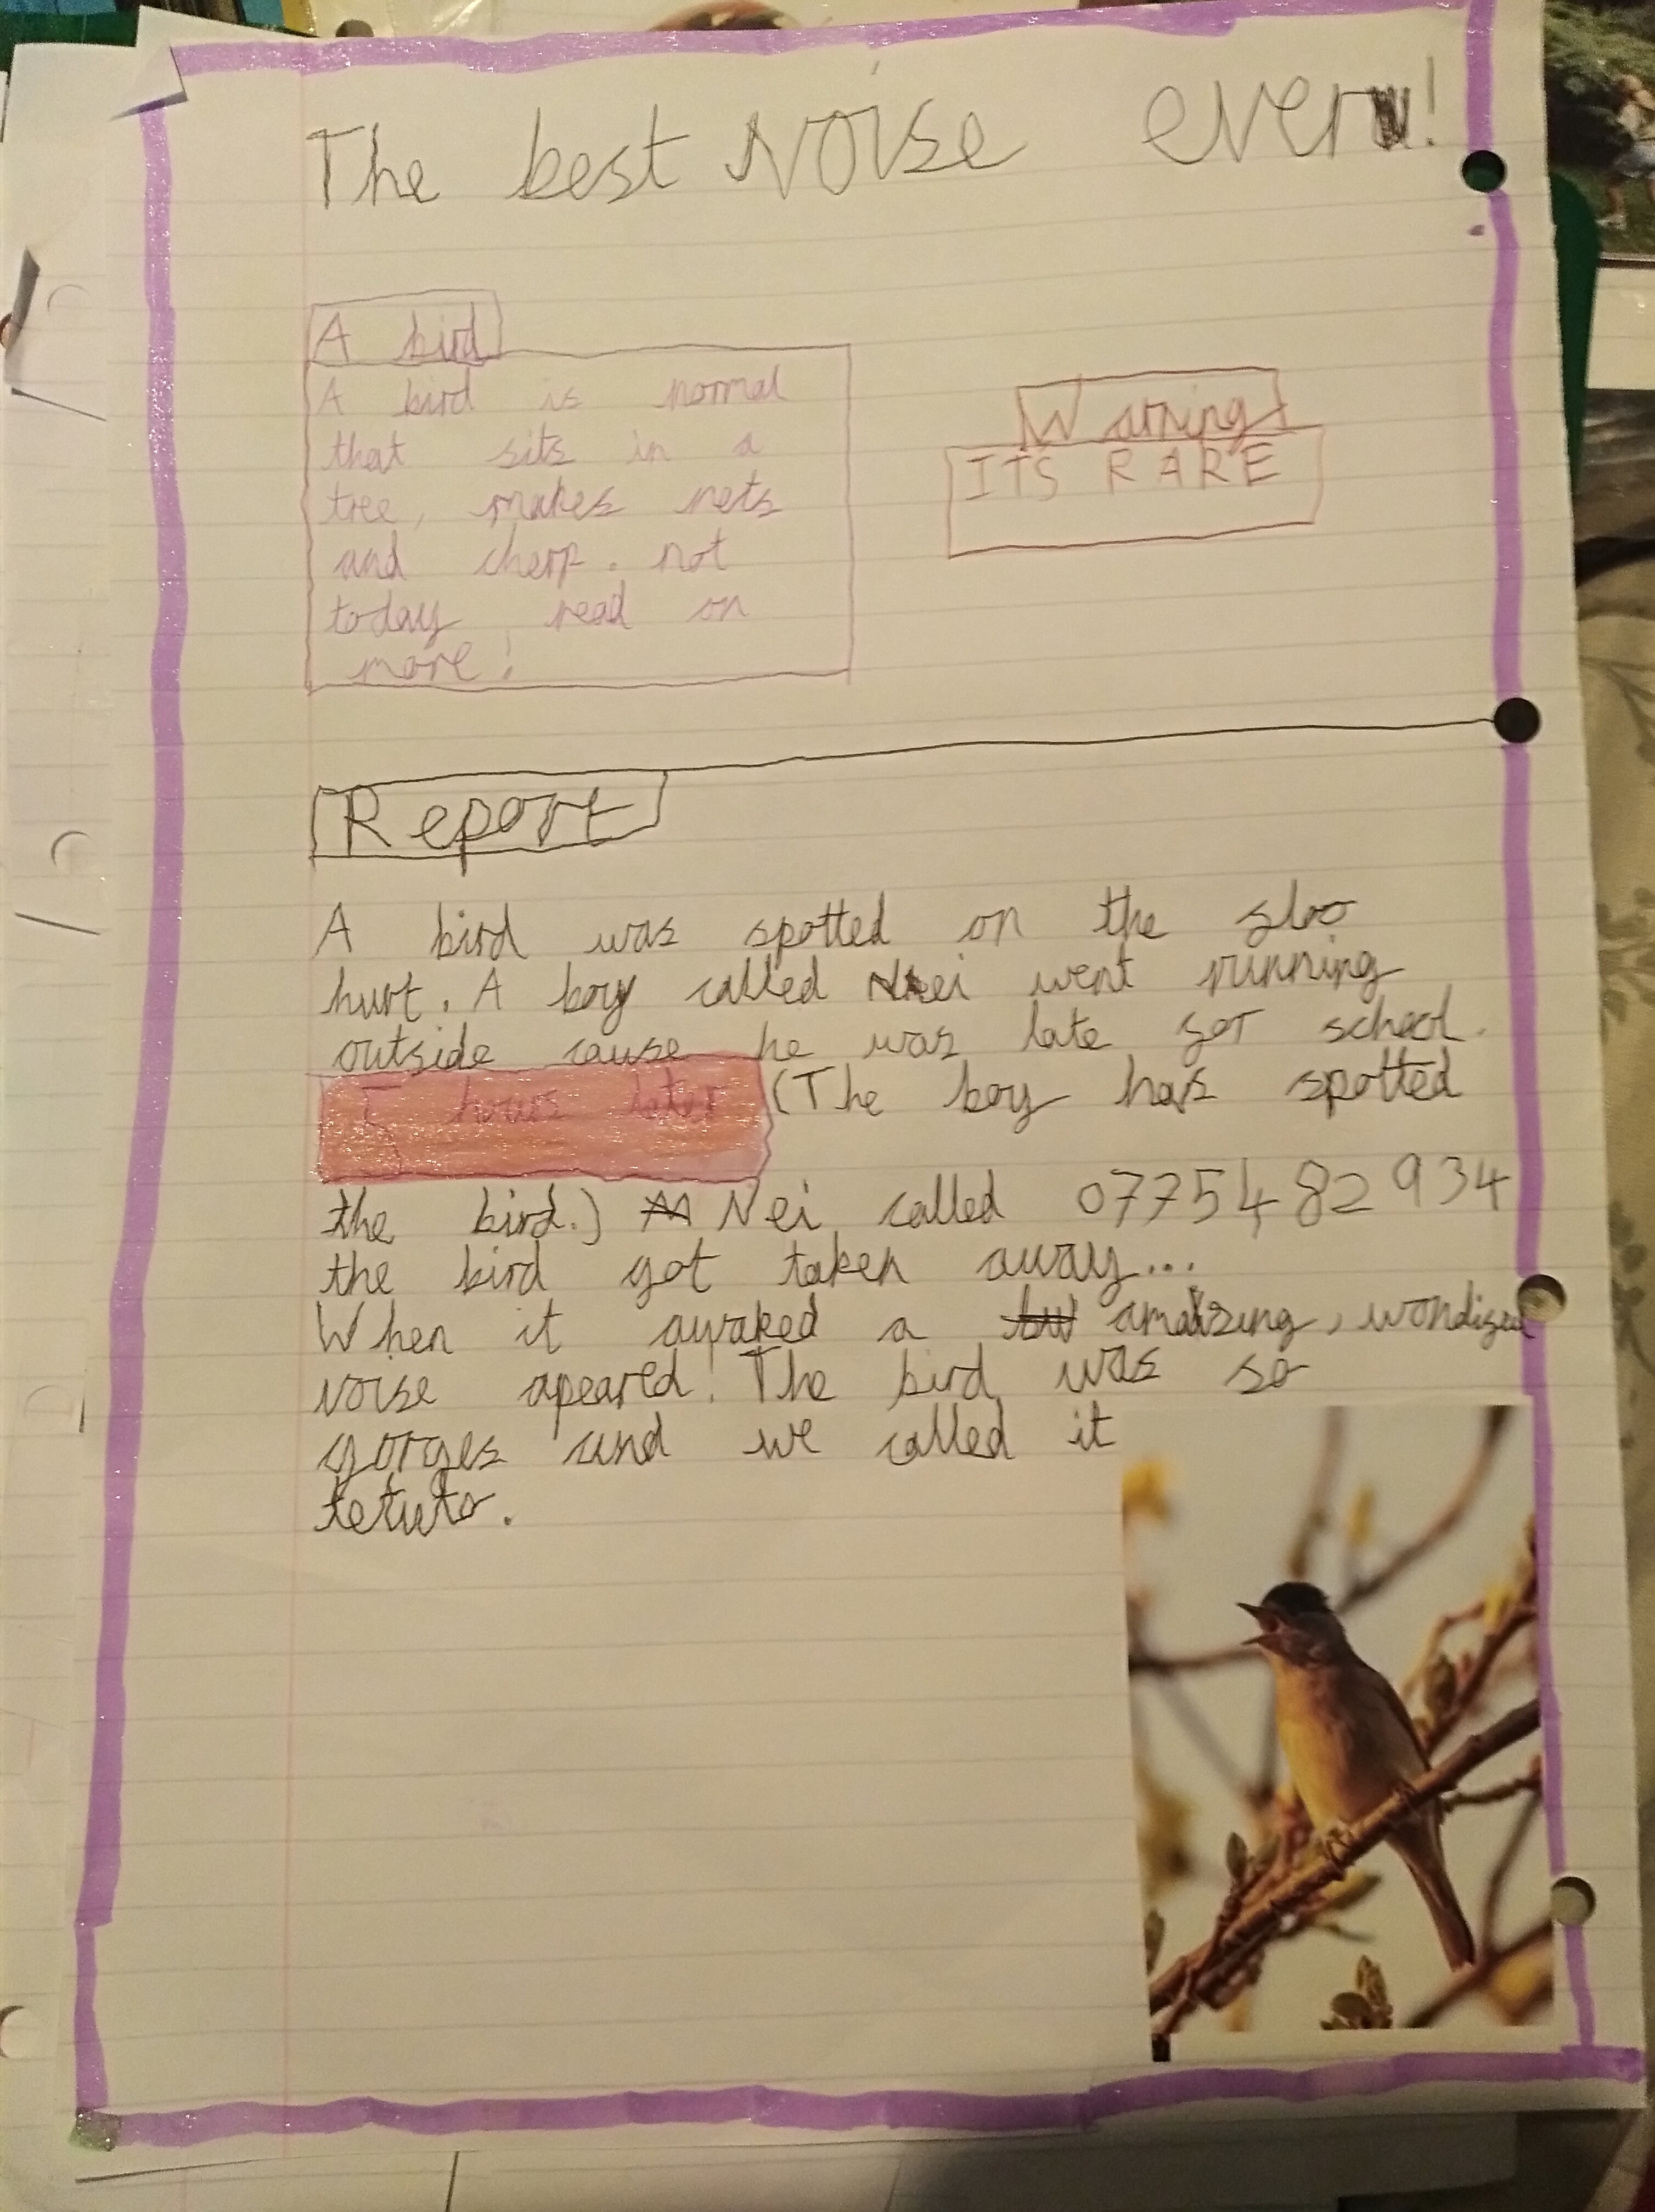 The best Noise ever!
A bird
A bird is normal
that sits in a
tree, makes nets
and cherp. not
today read on
more!
Warning
ITS RARE
Report
A bird was spotted on the
hurt. A boy called Nei went running
outside cause he was late for school.
5 hours later (The boy has spotted
the bird.) Nei called 07754 82934
the bird got taken away...
When it awaked a amaizing, wondized
noise apeared! The bird was so
gorges and we called it
tetuto.